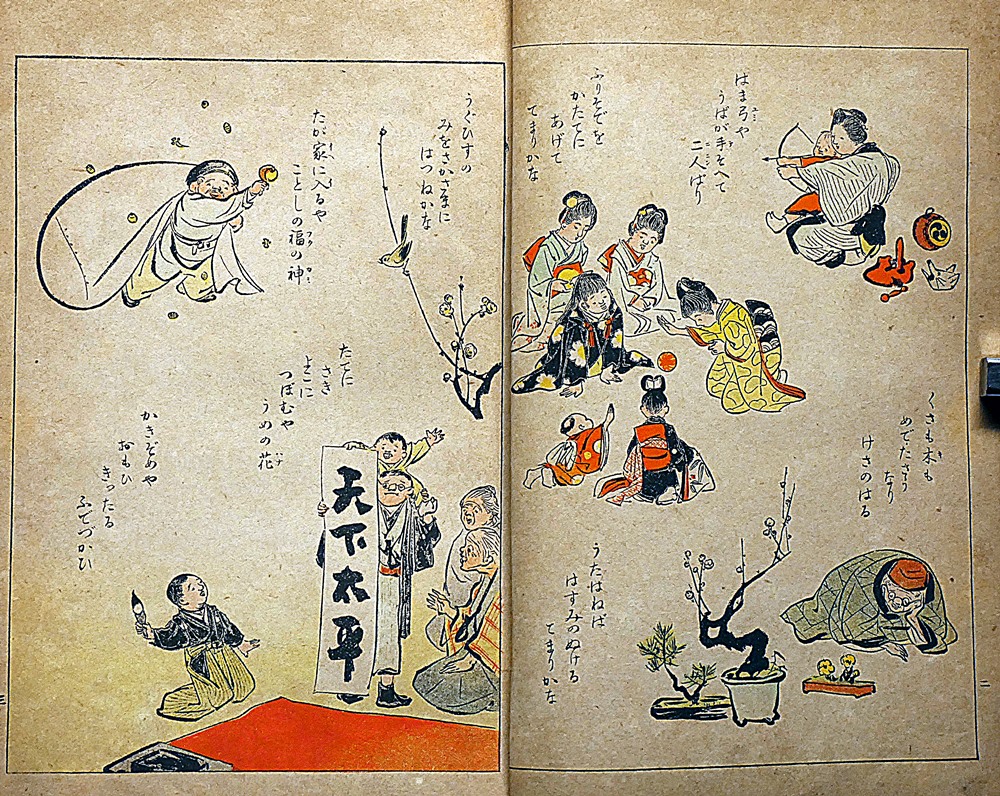 はま弓や
うばが手そへて
二人ばり
ふりそでを
かたてに
あげて
てまりかな
くさも木も
めでたさう
なり
けさのはる
うたはねば
はずみのぬける
てまりかな
うぐひすの
みをさかさまに
はつねかな
たが家に入るや
ことしの福の神
たてに
さき
よこに
つぼむや
うめの花
天下太平
かきぞめや
おもひ
きつたる
ふでづかひ